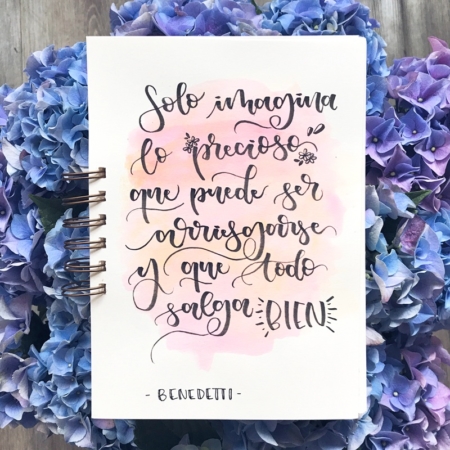 Solo imagina
lo precioso
que puede ser
arriesgarse
y que todo
salga BIEN
- BENEDETTI -